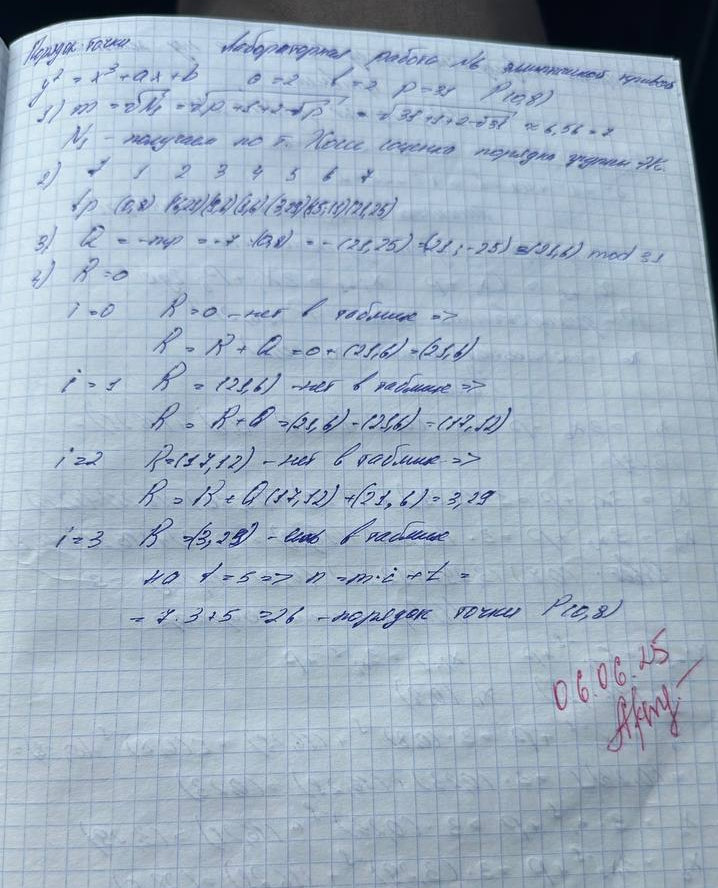 Порядок точки Лабораторная работа №6 эллиптической кривой
y² = x³ + ax + b a = 2 b = 2 p = 31 P(0,8)
1) m = √N₁ = √p + 1 + 2√p = √31 + 1 + 2√31 ≈ 6,56 = 7
N₁ - получаем по т. Хассе оценка порядка группы ЭК.
2) t 1 2 3 4 5 6 7
tp (0,8) (3,29) (21,25)
3) Q = -mp = -7·(0,8) = -(21,25) = (21; -25) = (21,6) mod 31
4) R = 0
i = 0 R = 0 - нет в таблице =>
R = R + Q = 0 + (21,6) = (21,6)
i = 1 R = (21,6) - нет в таблице =>
R = R + Q = (21,6) + (21,6) = (17,12)
i = 2 R = (17,12) - нет в таблице =>
R = R + Q (17,12) + (21,6) = 3,29
i = 3 R = (3,29) - есть в таблице
на t = 5 => n = m·i + t =
= 7·3 + 5 = 26 - порядок точки P(0,8)
06.06.25